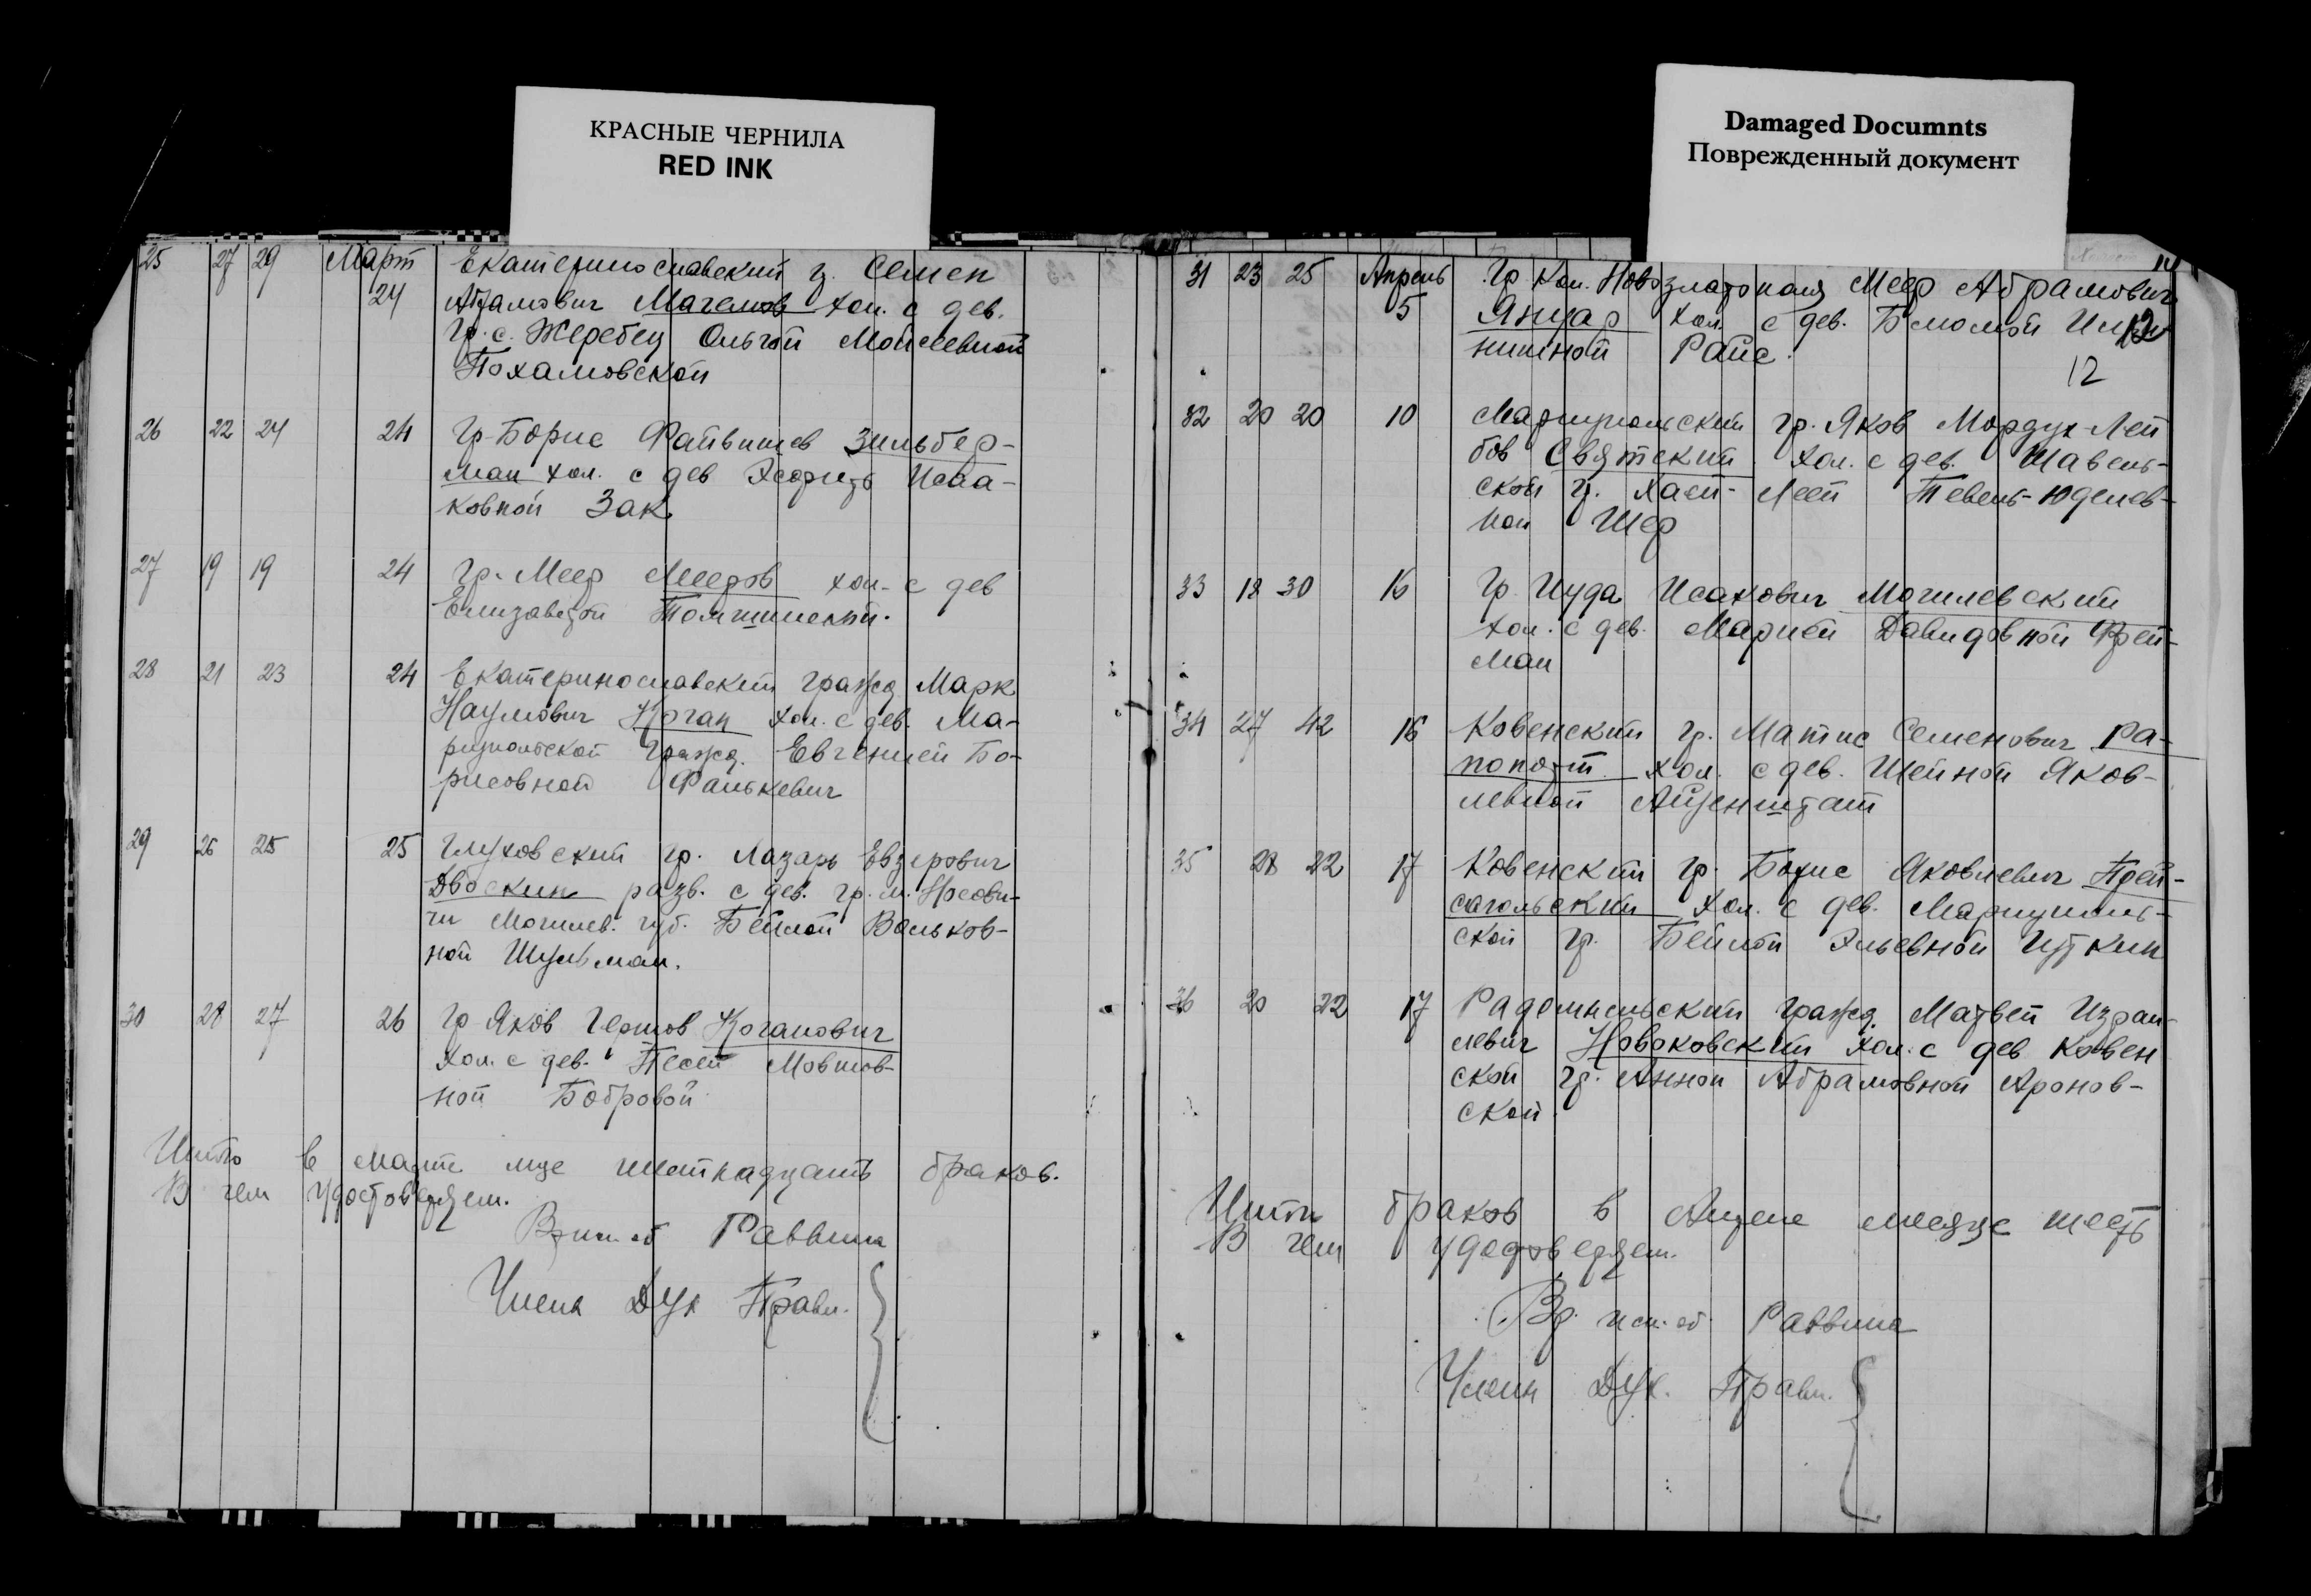 КРАСНЫЕ ЧЕРНИЛА
RED INK
Damaged Documnts
Поврежденный документ
25 27 29 Март Екатеринославский г. Семен
24 Абрамович хол. с дев.
Гр. с. Жеребец Ольгой Моисеевной
26 22 24 24 Гр. Борис Файвишев Зильбер-
ман хол. с дев Исаа-
ковной Зак
27 19 19 24 Гр. Меер Мееров хол. с дев
Елизаветой
28 21 23 24 Екатеринославский гражд Марк
Наумович Коган хол. с дев. Ма-
риупольской гражд. Евгенией Бо-
рисовной Фалькевич
29 26 25 25 Глуховский гр. Лазарь Евзерович
Двоскин разв. с дев. гр. м.
чи Могилев. губ. Бейлой Вольков-
ной Шульман.
30 28 27 26 Гр Яков Коганович
хол. с дев. Песей Мовшов-
ной Бобровой
Итого в марте м-це браков.
В чем удостоверяем.
Раввина
Члены Дух Правл.
14
31 23 25 Апрель Гр кол. Новозлатополя Меер Абрамович
5 Янцар хол. с дев. Блюмой 12
Райс.
12
32 20 20 10 Мариупольский гр. Яков Мордух-Лей
бов Святский хол. с дев. Шавель-
ской гр. Хаей-Леей Тевель-Юделев-
ной Шер
33 18 30 16 Гр. Иуда Исакович Могилевский
хол. с дев. Марией Давидовной Фрей-
ман
34 27 42 16 Ковенский гр. Матис Семенович Ра-
попорт хол. с дев. Шейной Яков-
левной Айзенштат
35 28 22 17 Ковенский гр. Борис Яковлевич Прей-
сагольский хол. с дев. Мариуполь-
ской гр. Бейлой Эльевной Цуткин
36 20 22 17 Радомысльский гражд. Матвей Израи-
левич Новаковский хол. с дев Ковен
ской гр. Анной Абрамовной Аронов-
ской.
Итого браков в Апреле месяце шесть
В чем удостоверяем.
Вр. исп. об. Раввина
Члены Дух. Правл.